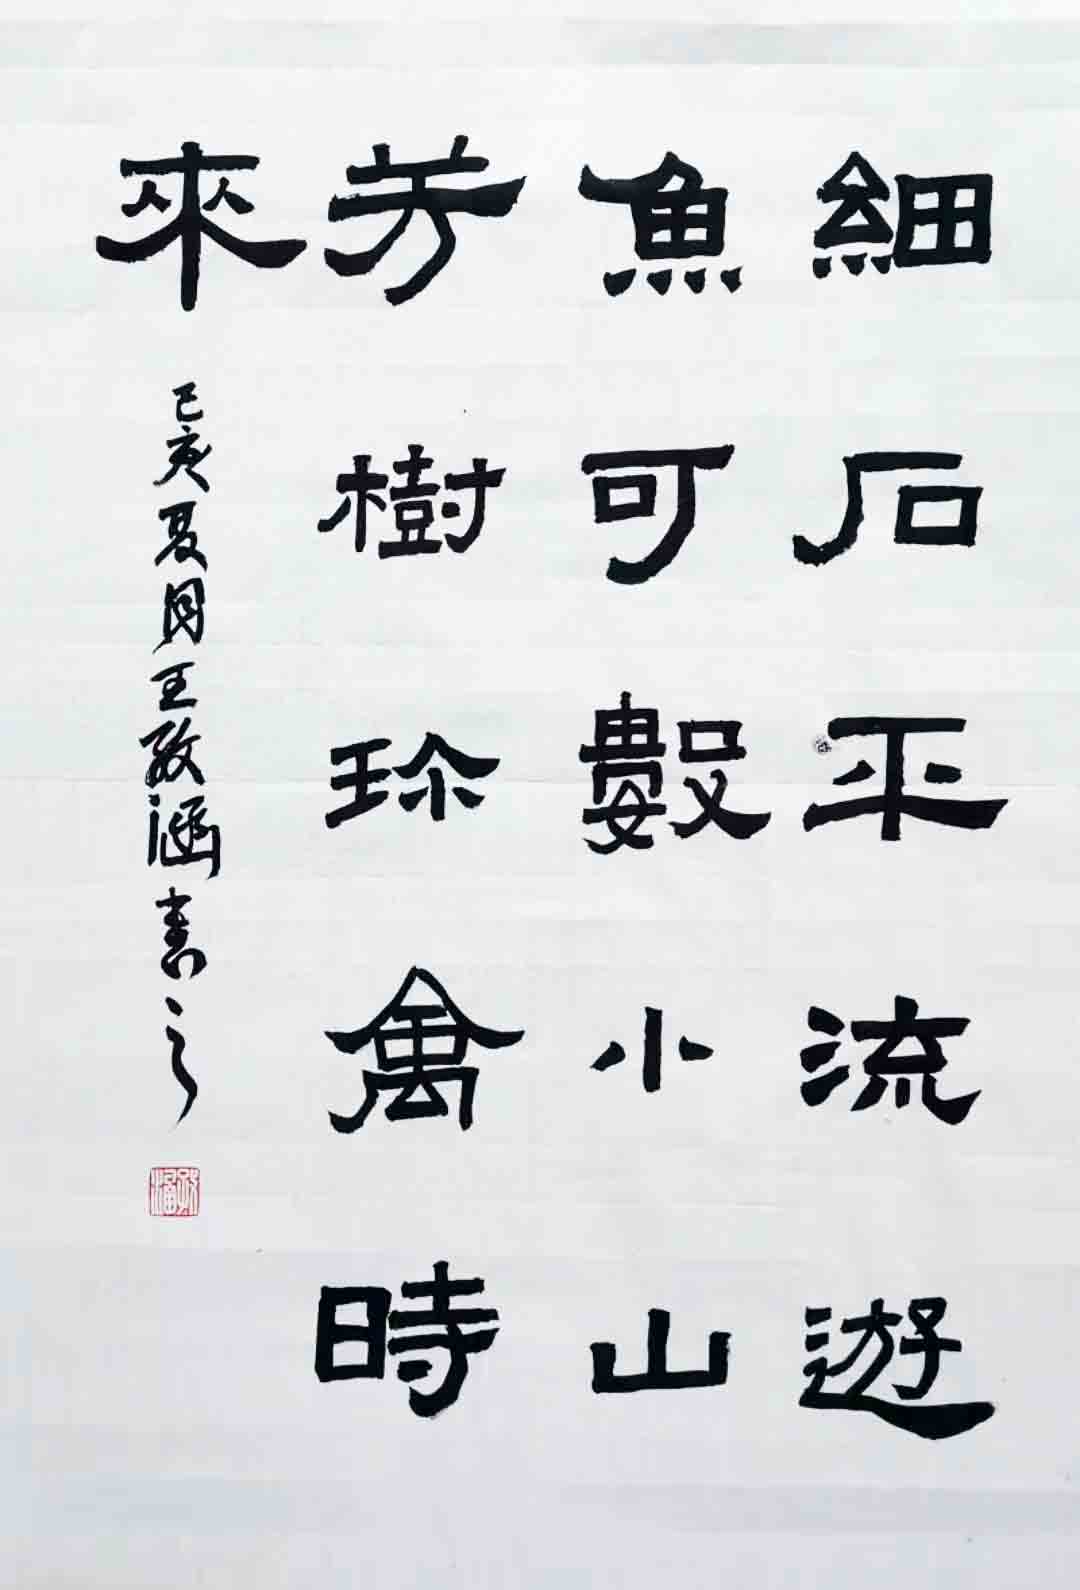 細石平流遊
魚可數小山
芳樹珍禽時
來
己亥夏月王敬涵書之